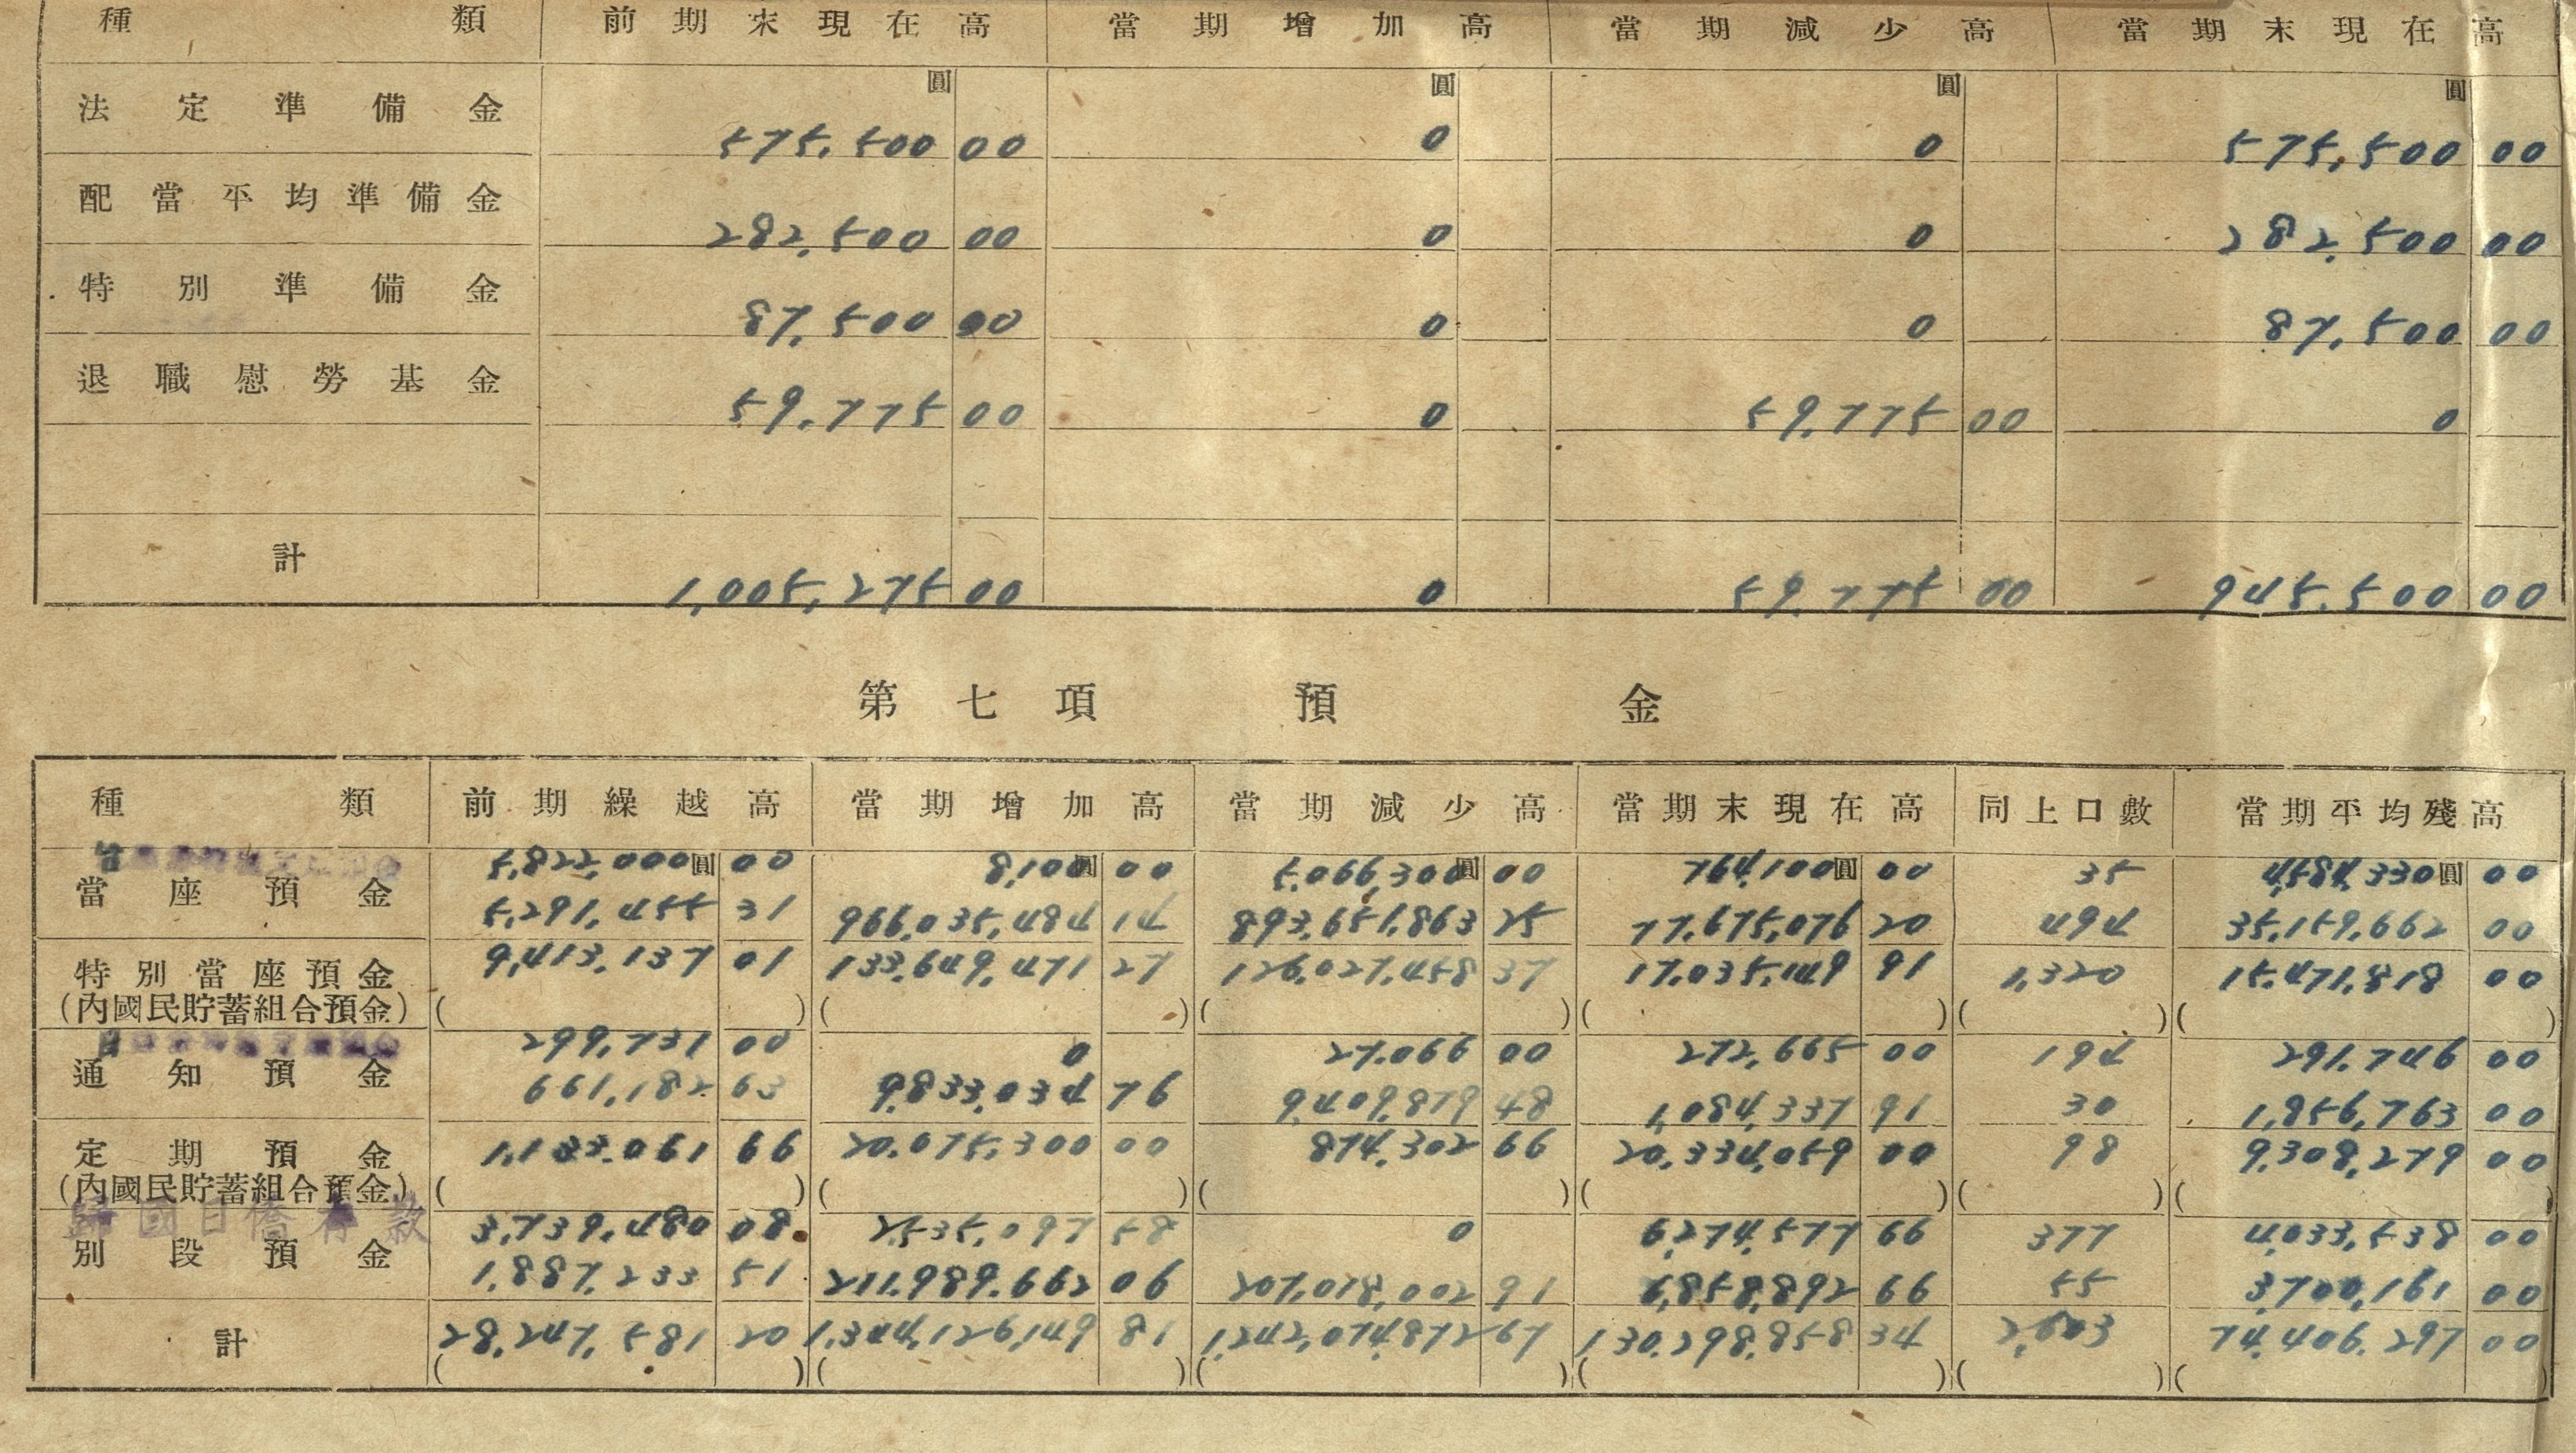 種類 前期末現在高 當期增加高 當期減少高 當期末現在高
圓 圓 圓 圓
法定準備金 575,500 00 0 0 575,500 00
配當平均準備金 282,500 00 0 0 282,500 00
特別準備金 87,500 00 0 0 87,500 00
退職慰勞基金 59,775 00 0 59,775 00 0
計 1,005,275 00 0 59,775 00 945,500 00
第七項 預金
種類 前期繰越高 當期增加高 當期減少高 當期末現在高 同上口數 當期平均殘高
5,822,000圓 00 8,100圓 00 5,066,300圓 00 764,100圓 00 35 4,584,330圓 00
當座預金 5,291,455 31 966,035,484 14 893,651,863 25 77,675,076 20 494 35,159,662 00
特別當座預金 9,413,137 01 133,649,471 27 126,027,458 37 17,035,149 91 1,320 15,471,818 00
(內國民貯蓄組合預金) ( ) ( ) ( ) ( ) ( ) ( )
299,731 00 0 27,066 00 272,665 00 194 291,746 00
通知預金 661,182 63 9,833,034 76 9,409,879 48 1,084,337 91 30 1,856,763 00
定期預金 1,133,061 66 20,075,300 00 874,302 66 20,334,059 00 98 9,308,279 00
(內國民貯蓄組合預金) ( ) ( ) ( ) ( ) ( ) ( )
歸國日僑存款 3,739,480 08 2,535,097 58 0 6,274,577 66 377 4,033,538 00
別段預金 1,887,233 51 211,989,662 06 207,018,002 91 6,858,892 66 55 3,700,161 00
計 28,247,281 20 1,344,126,149 81 1,242,074,872 67 130,298,858 34 2,603 74,406,297 00
( ) ( ) ( ) ( ) ( ) ( )